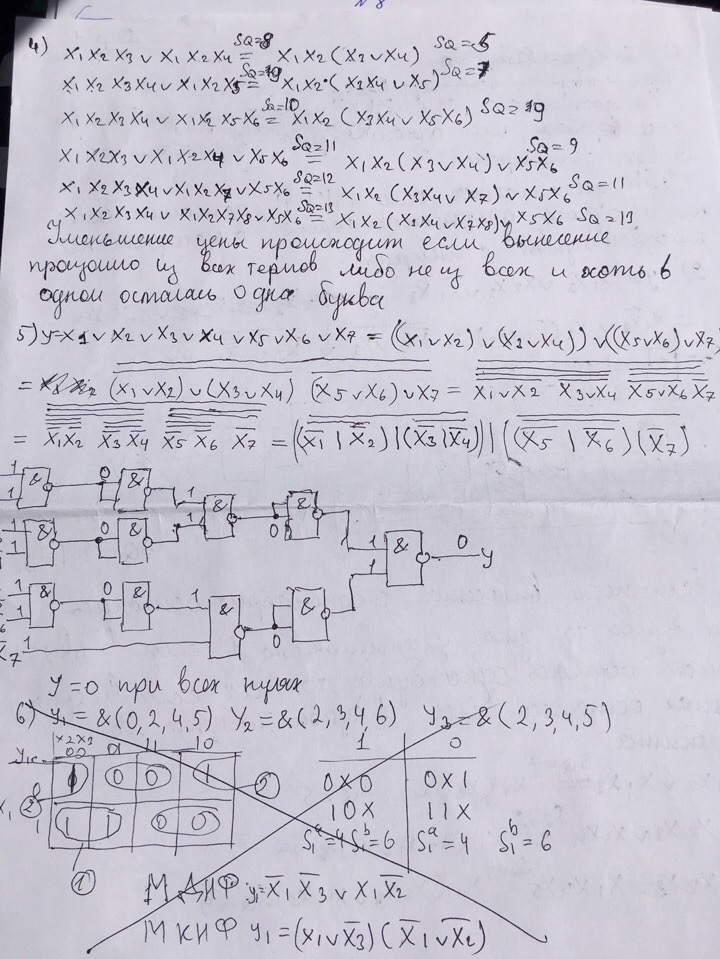 N 8
4) X₁X₂X₃ v X₁X₂X₄ = (SQ=8) X₁X₂(X₃vX₄) SQ=5
X₁X₂X₃X₄ v X₁X₂X₅ = X₁X₂(X₃X₄vX₅) SQ=7
X₁X₂X₃X₄ v X₁X₂X₅X₆ = (SQ=10) X₁X₂(X₃X₄vX₅X₆)
X₁X₂X₃ v X₁X₂X₄ v X₅X₆ = (SQ=11) X₁X₂(X₃vX₄)vX₅X₆ SQ=9
X₁X₂X₃X₄ v X₁X₂X₇ v X₅X₆ = (SQ=12) X₁X₂(X₃X₄vX₇)vX₅X₆ SQ=11
X₁X₂X₃X₄ v X₁X₂X₇X₈ v X₅X₆ = (SQ=13) X₁X₂(X₃X₄vX₇X₈)vX₅X₆ SQ=13
Уменьшение цены происходит если вынесение
произошло из всех термов либо не из всех и хоть в
одной осталась одна буква
5) y=X1vX2vX3vX4vX5vX6vX7 = ((X1vX2)v(X3vX4))v((X5vX6)vX7)
= (X1vX2)v(X3vX4) (X5vX6)vX7 = X1vX2 X3vX4 X5vX6 X7
= X̅₁X̅₂ X̅₃X̅₄ X̅₅X̅₆ X̅₇ = ((X̅₁|X̅₂)|(X̅₃|X̅₄))|((X̅₅|X̅₆)(X̅₇)
1 & 0 & 1 & 0 &
1 & 0 & 1 & 0 y
& 0 & 1 & 0 & 1
X̅₇ 1
Y=0 при всех нулях
6) Y₁=&(0,2,4,5) Y₂=&(2,3,4,6) Y₃=&(2,3,4,5)
X2X3 00 01 11 10
0 1 0 0 1
X₁ 1 1 1 0 0
1 0
0X0 0X1
10X 11X
S₁ᵃ=4 S₁ᵇ=6 S₁ᵃ=4 S₁ᵇ=6
МДНФ y₁=X̅₁X̅₃ v X₁X̅₂
МКНФ y₁=(X₁vX̅₃)(X̅₁vX̅₂)